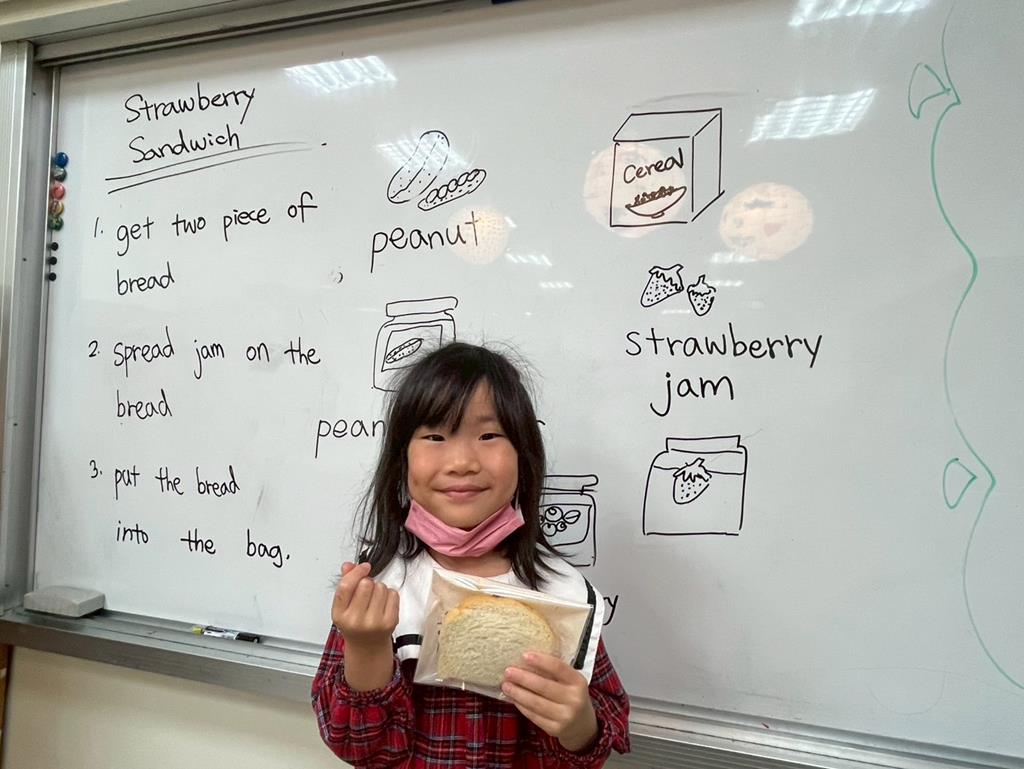 Strawberry
Sandwich
1. get two piece of
bread
2. spread jam on the
bread
3. put the bread
into the bag.
peanut
cereal
strawberry
jam